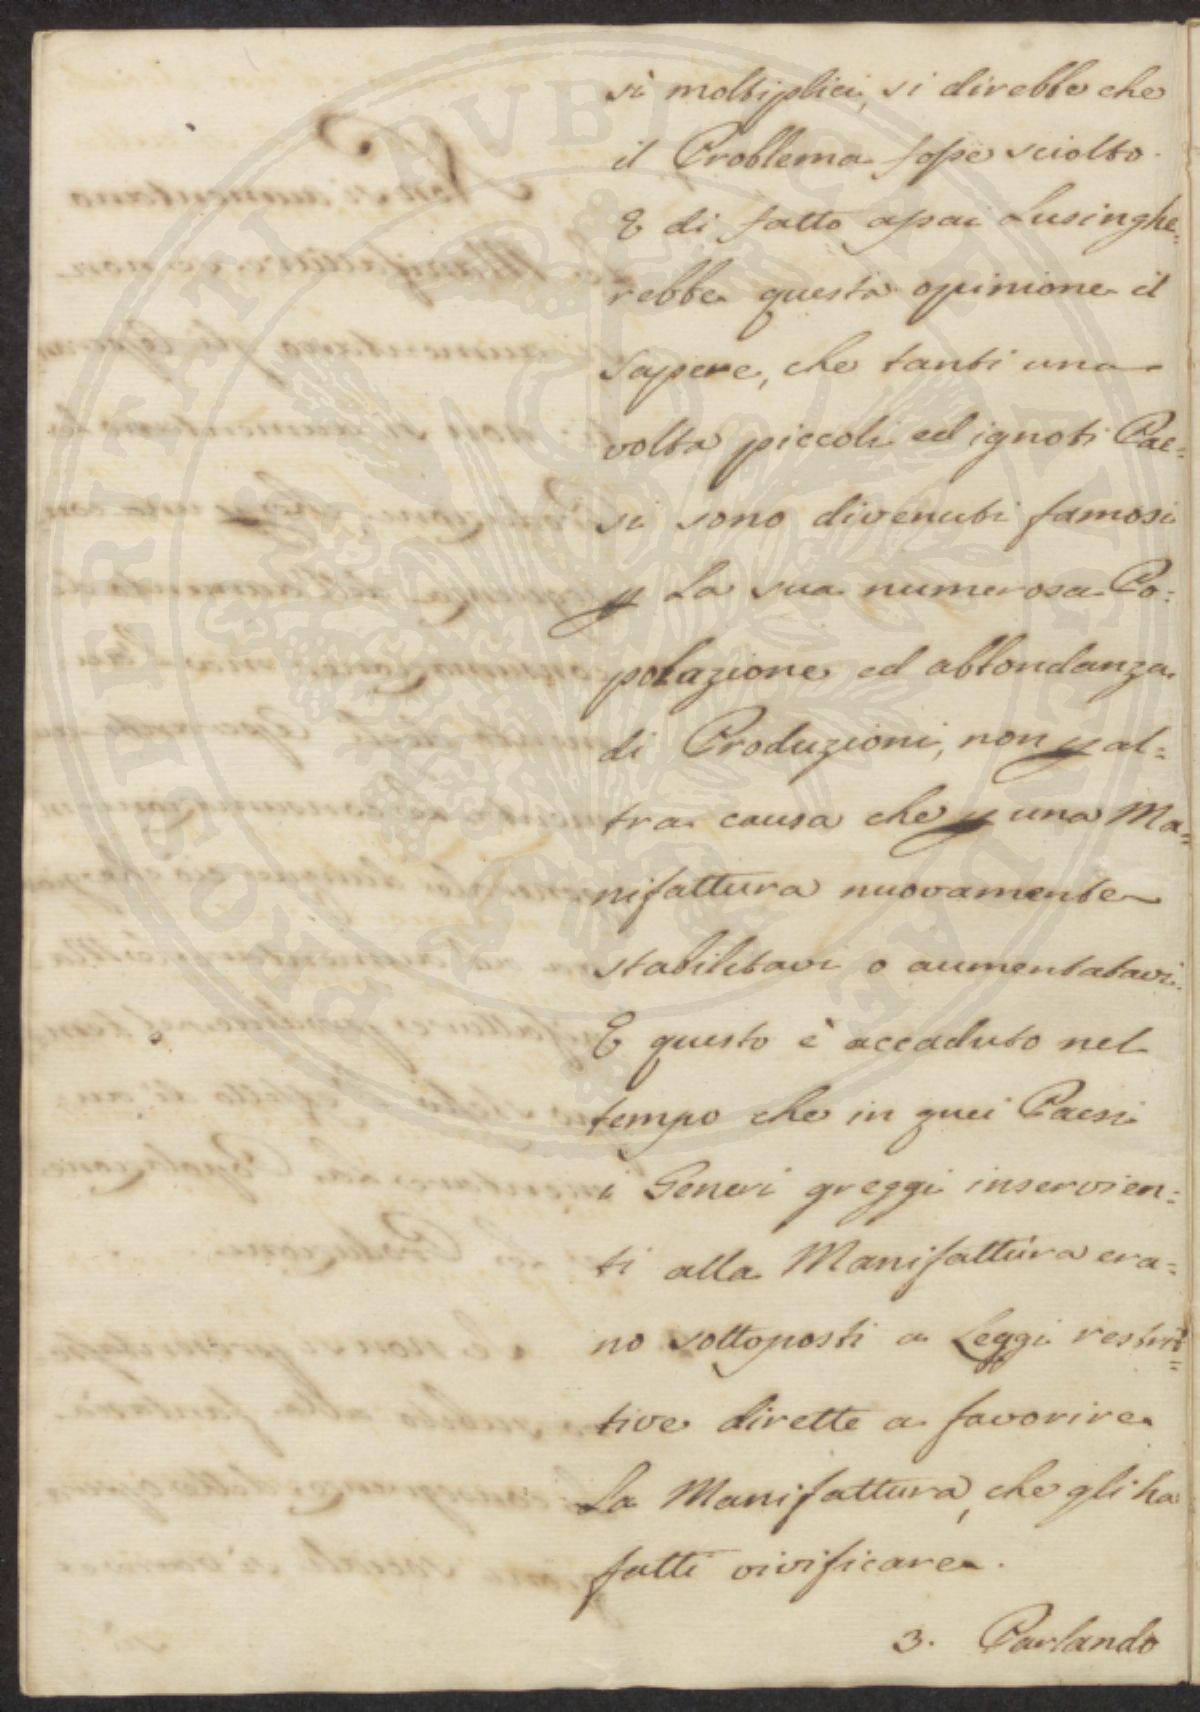 sì moltiplici, si direbbe che
il Problema fosse sciolto.
E di fatto assai Lusinghe=
rebbe questa opinione il
Sapere, che tanti una
volta piccoli ed ignoti Pae=
si sono divenuti famosi
p La sua numerosa Po=
polazione ed abbondanza
di Produzioni, non p al=
tra causa che p una Ma=
nifattura nuovamente
stabilitavi o aumentatavi.
E questo è accaduto nel
tempo che in quei Paesi
i Generi greggi inservien=
ti alla Manifattura era=
no sottoposti a Leggi restrit=
tive dirette a favorire
La Manifattura, che gli ha
fatti vivificare.
3. Parlando
PROSPERITATI PVBLICAE AVGENDAE